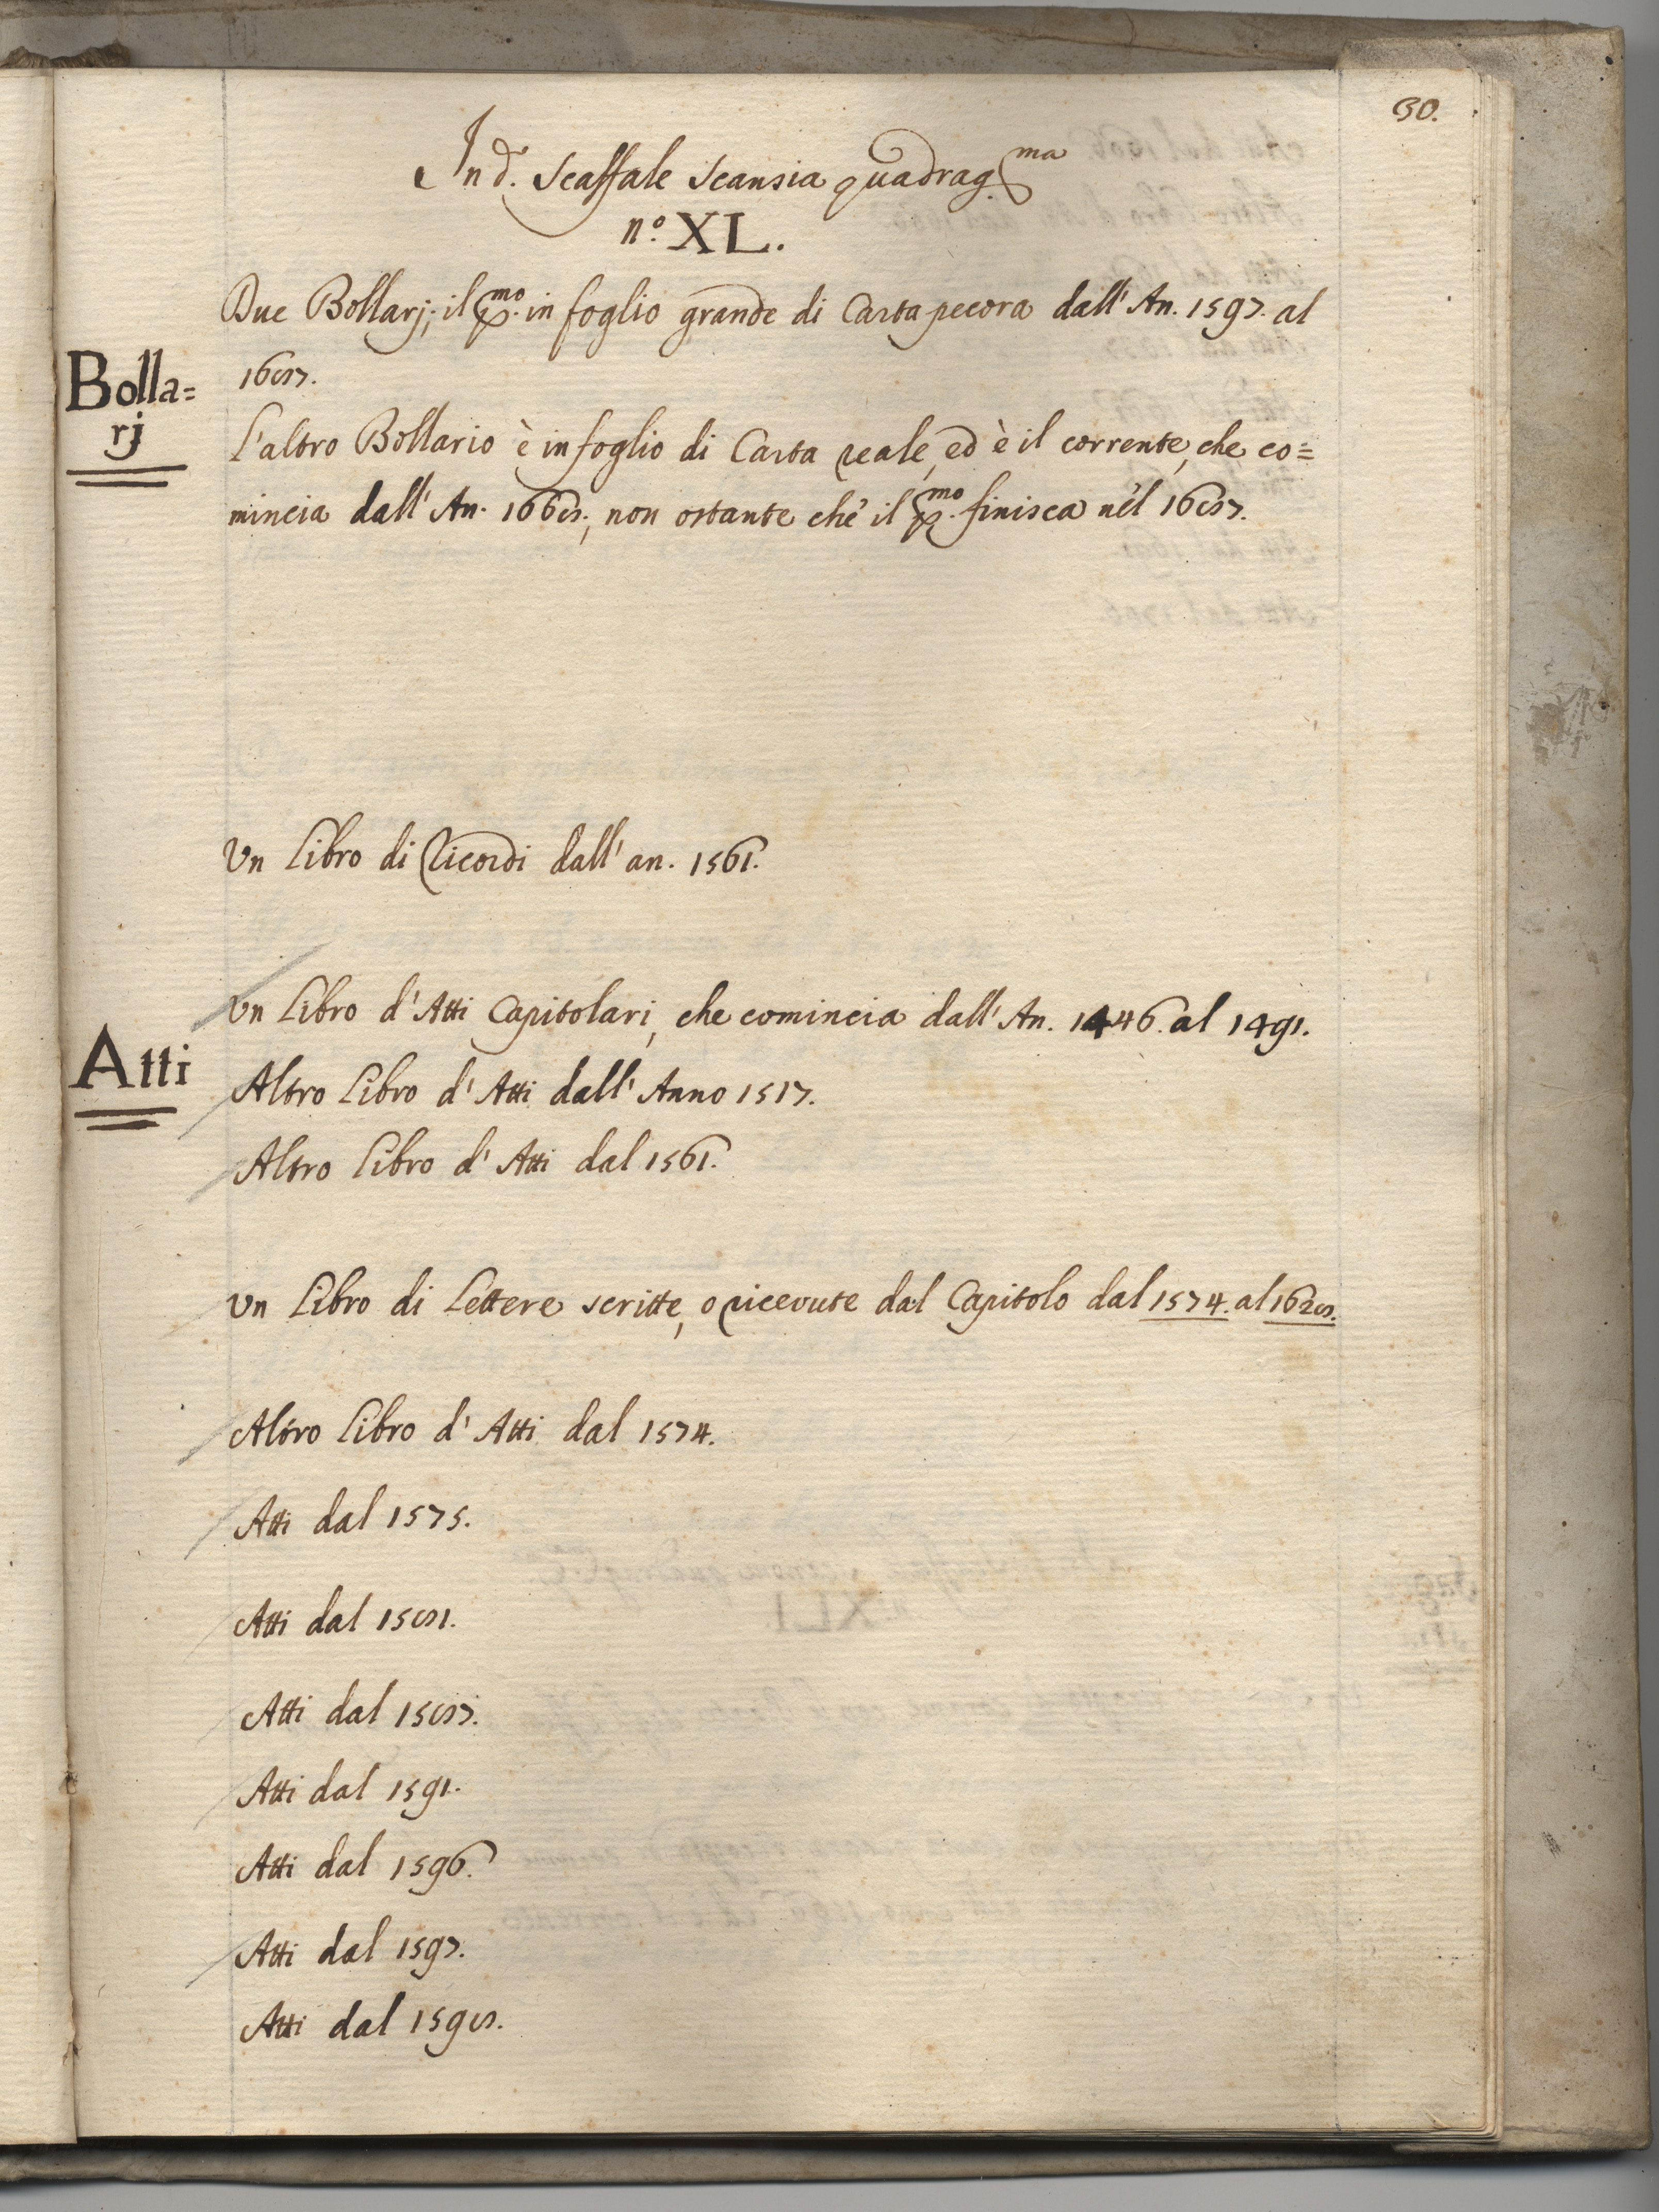 30.
In d.º Scaffale Scansia quadrag.ma
n.º XL.
Due Bollarj; il p.mo in foglio grande di Carta pecora dall' An. 1597. al
1687.
Bolla=
rj
L'altro Bollario è in foglio di Carta reale, ed è il corrente, che co=
mincia dall' An. 1668., non ostante che il p.mo finisca nel 1687.
Un Libro di Ricordi dall' an. 1561.
Un Libro d' Atti Capitolari, che comincia dall' An. 1446. al 1491.
Atti
Altro Libro d' Atti dall' Anno 1517.
Altro Libro d' Atti dal 1561.
Un Libro di Lettere scritte, o ricevute dal Capitolo dal 1574. al 1628.
Altro Libro d' Atti dal 1574.
Atti dal 1575.
Atti dal 1581.
Atti dal 1587.
Atti dal 1591.
Atti dal 1596.
Atti dal 1597.
Atti dal 1598.